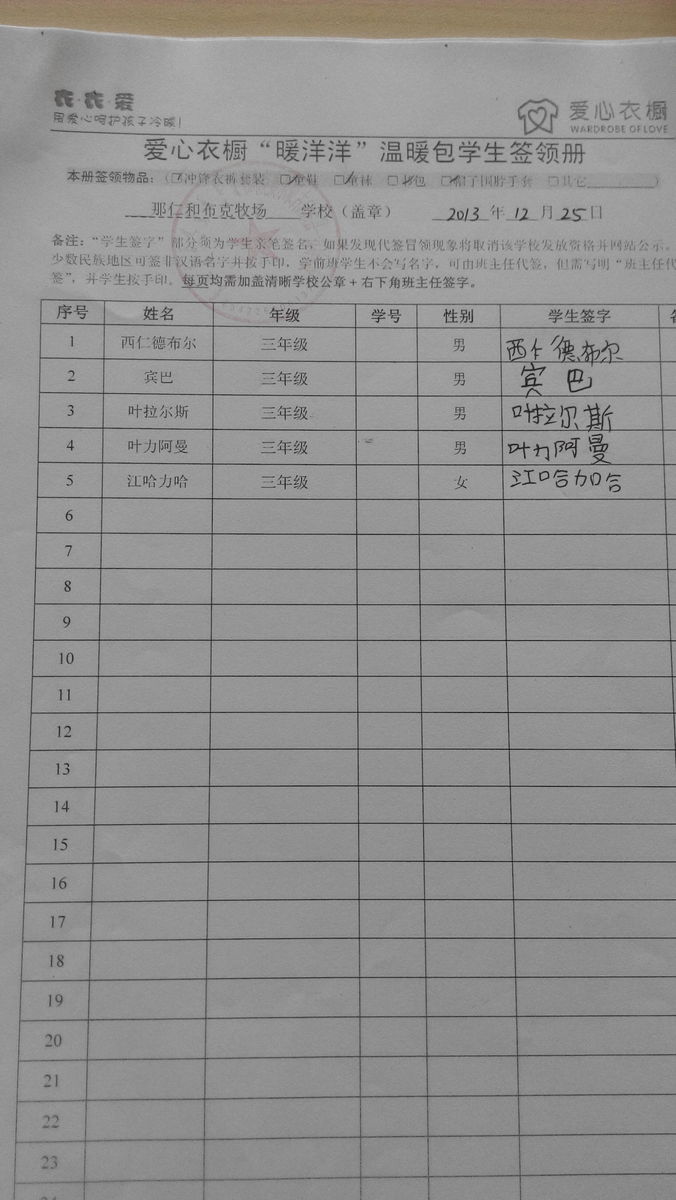 衣·衣·爱
用爱心呵护孩子冷暖!
爱心衣橱
WARDROBE OF LOVE
爱心衣橱“暖洋洋”温暖包学生签领册
本册签领物品:(☑冲锋衣裤套装 ☑童鞋 ☑童袜 ☑书包 ☑帽子围脖手套 □其它 )
那仁和布克牧场 学校(盖章) 2013 年 12 月 25 日
备注:“学生签字”部分须为学生亲笔签名,如果发现代签冒领现象将取消该学校发放资格并网站公示。
少数民族地区可签非汉语名字并按手印,学前班学生不会写名字,可由班主任代签,但需写明“班主任代
签”,并学生按手印。每页均需加盖清晰学校公章+右下角班主任签字。
序号 姓名 年级 学号 性别 学生签字
1 西仁德布尔 三年级 男 西仁德布尔
2 宾巴 三年级 男 宾巴
3 叶拉尔斯 三年级 男 叶拉尔斯
4 叶力阿曼 三年级 男 叶力阿曼
5 江哈力哈 三年级 女 江哈加合
6
7
8
9
10
11
12
13
14
15
16
17
18
19
20
21
22
23